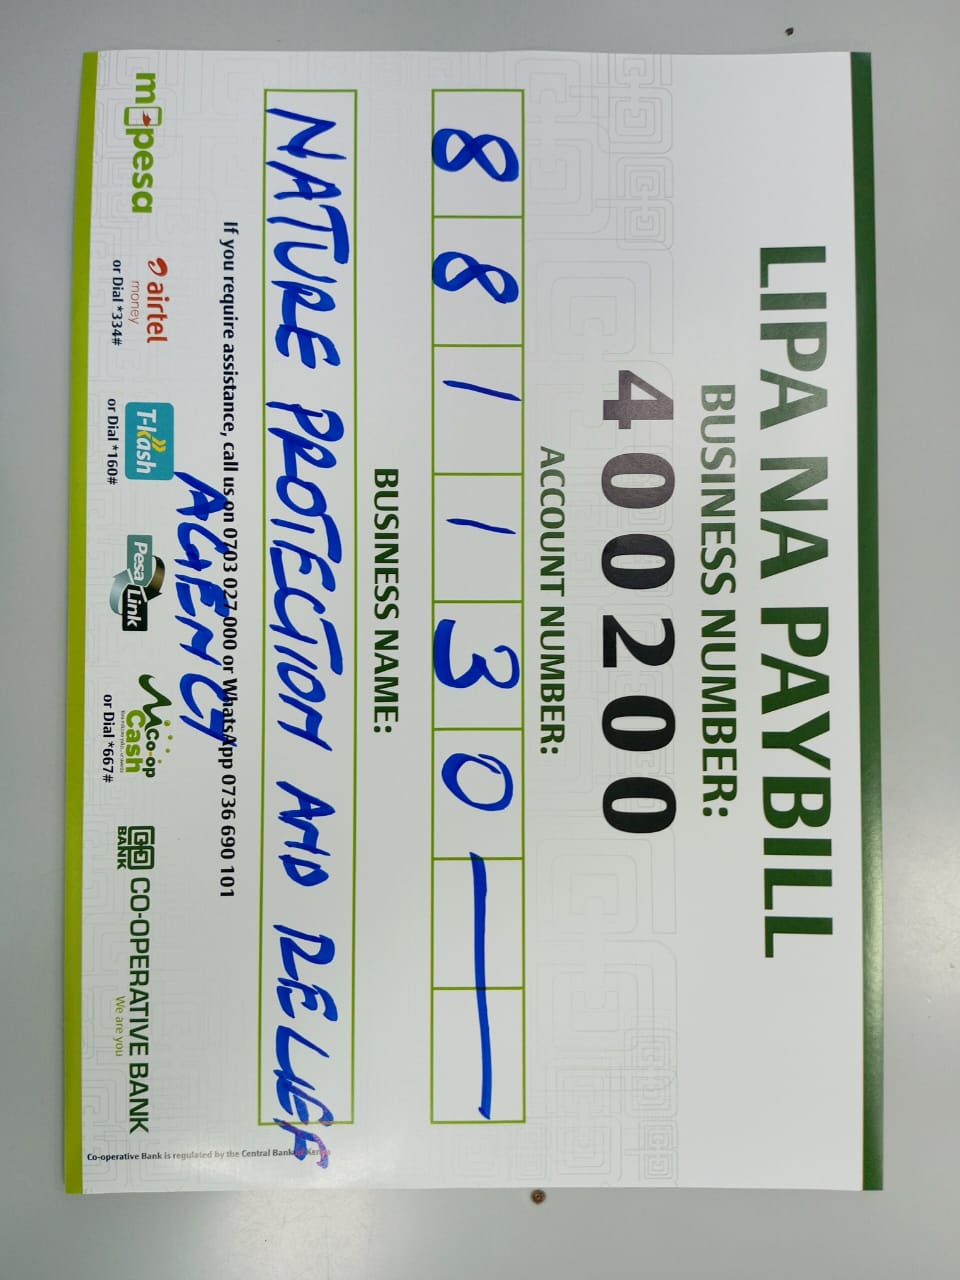 LIPA NA PAYBILL
BUSINESS NUMBER:
400200
ACCOUNT NUMBER:
881130
BUSINESS NAME:
NATURE PROTECTION AND RELIEF
If you require assistance, call us on 0703 027 000 or WhatsApp 0736 690 101
AGENCY
m-pesa
airtel
money
or Dial *334#
T-kash
or Dial *160#
Pesa Link
MCo-op
Cash
or Dial *667#
BANK
CO-OPERATIVE BANK
We are you
Co-operative Bank is regulated by the Central Bank